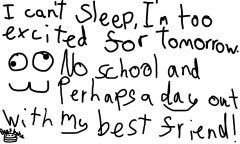 I can't Sleep, I'm too
excited for tomorrow.
No school and
Perhaps a day out
with my best friend!